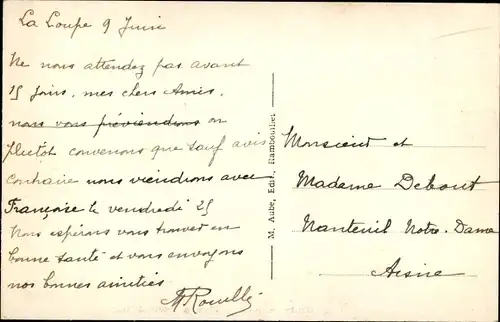 La Loupe 9 Juin
Ne nous attendez pas avant
15 jours, mes chers Amis,
nous vous préviendrons ou
plutôt convenons que sauf avis
contraire nous viendrons avec
Françoise le vendredi 25
Nous espérons vous trouver en
bonne santé et vous envoyons
nos bonnes amitiés
M. Aubé, Edit., Rambouillet
Monsieur et
Madame Debout
Nanteuil Notre-Dame
Aisne